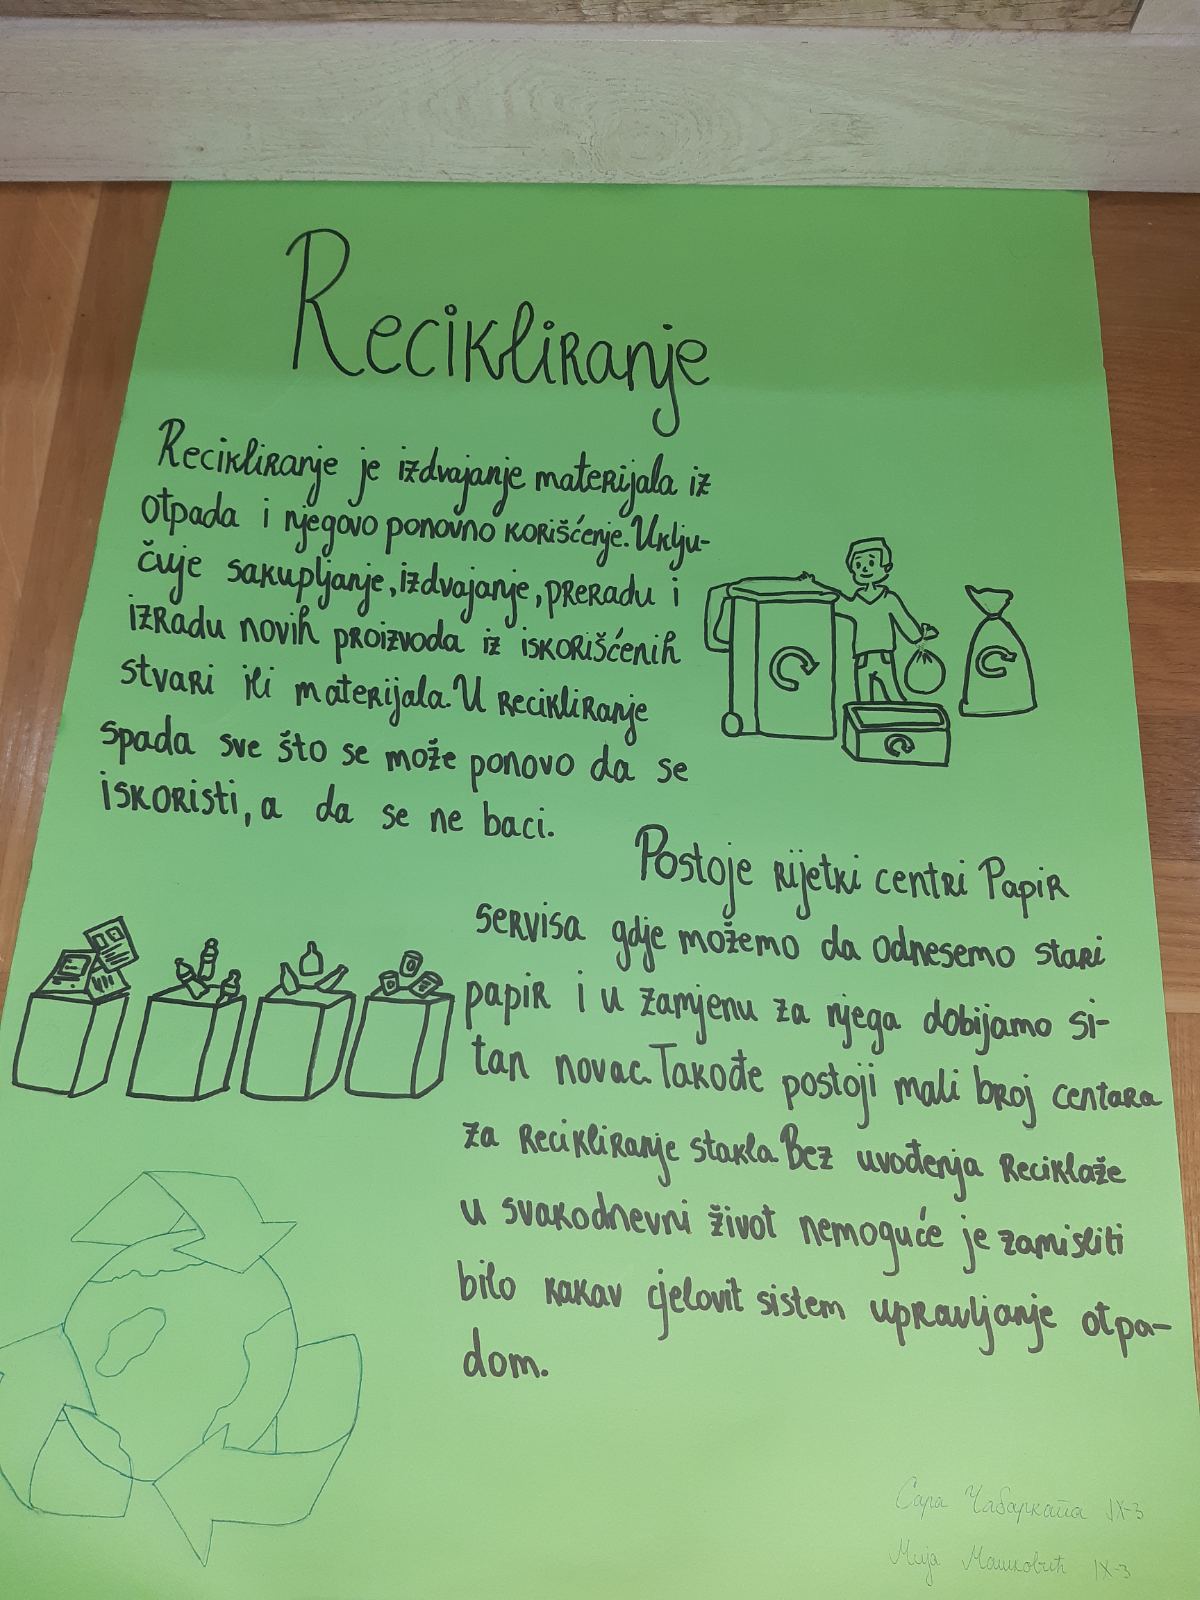 Recikliranje
Recikliranje je izdvajanje materijala iz
otpada i njegovo ponovno korišćenje. Uklju-
čuje sakupljanje, izdvajanje, preradu i
izradu novih proizvoda iz iskorišćenih
stvari ili materijala. U recikliranje
spada sve što se može ponovo da se
iskoristi, a da se ne baci.
Postoje rijetki centri Papir
servisa gdje možemo da odnesemo stari
papir i u zamjenu za njega dobijamo si-
tan novac. Takođe postoji mali broj centara
za recikliranje stakla. Bez uvođenja reciklaže
u svakodnevni život nemoguće je zamisliti
bilo kakav cjelovit sistem upravljanje otpa-
dom.
Сара Чабаркапа IX-3
Мија Машковић IX-3